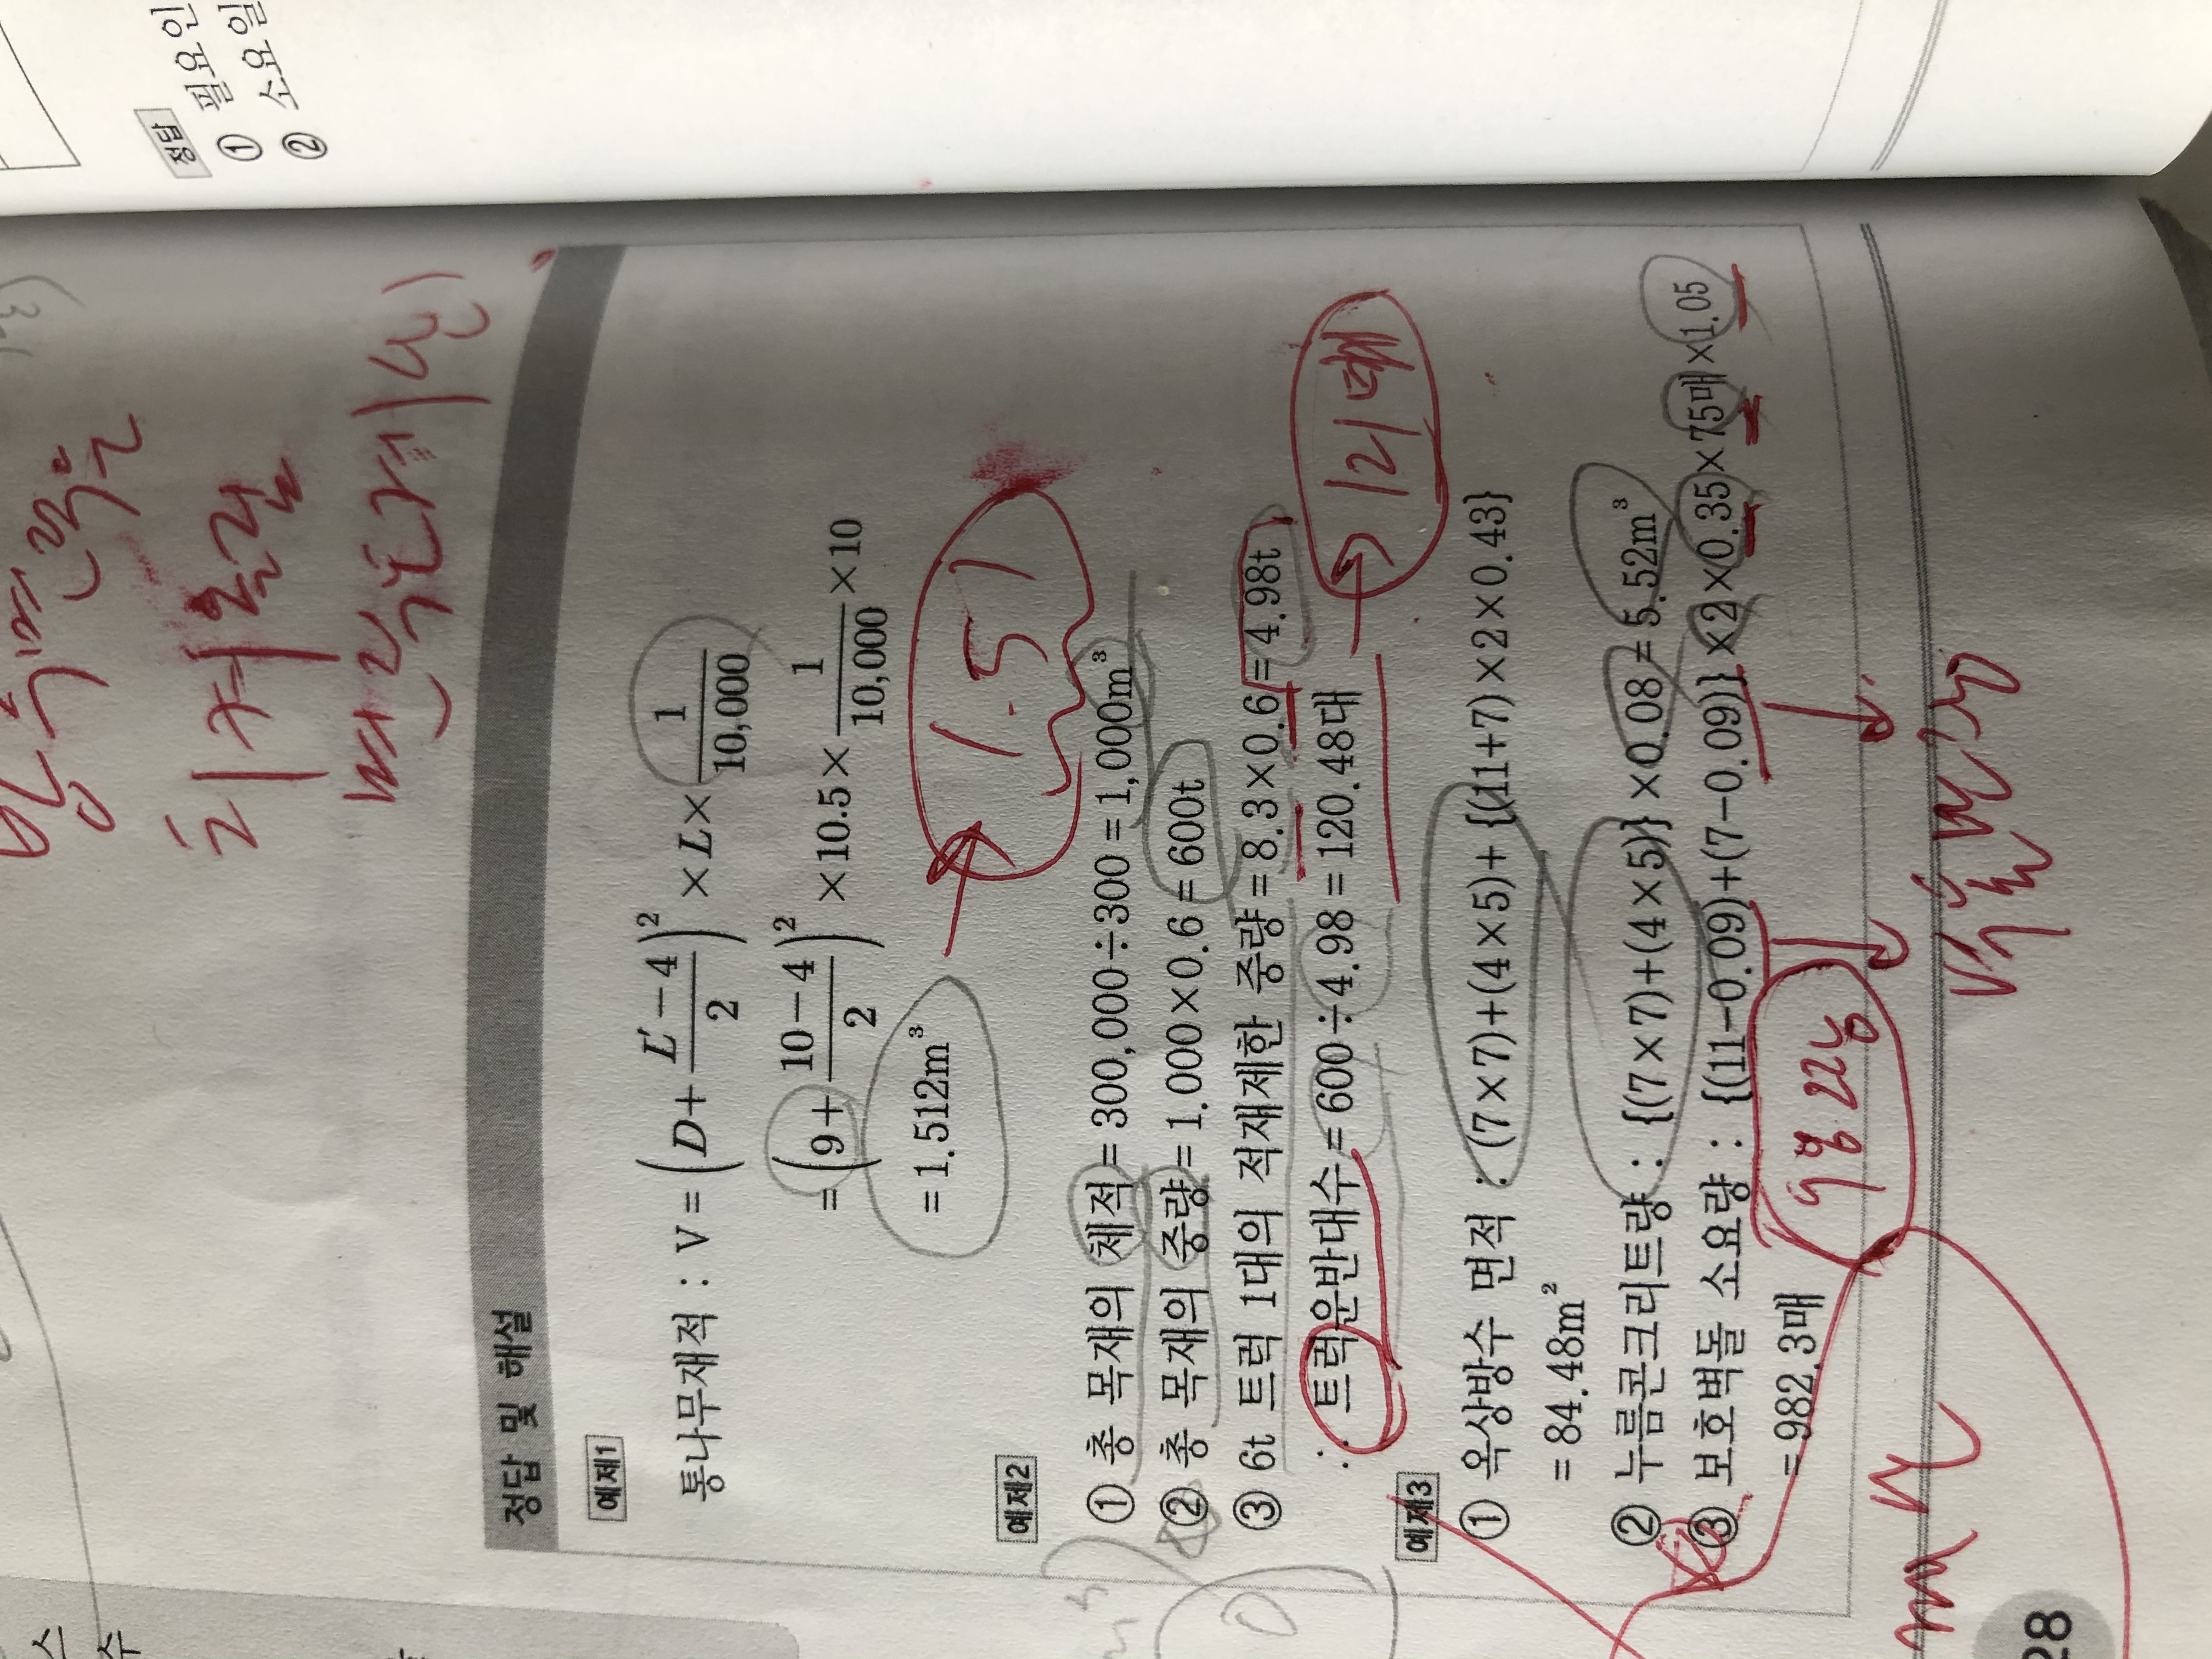 정답 및 해설
예제1
통나무재적 : V = (D + (L′-4)/2)² × L × 1/10,000
= (9 + (10-4)/2)² × 10.5 × 1/10,000 × 10
= 1.512m³ → 1.51
예제2
① 총 목재의 체적 = 300,000÷300 = 1,000m³
② 총 목재의 중량 = 1.000×0.6 = 600t
③ 6t 트럭 1대의 적재제한 중량 = 8.3×0.6 = 4.98t
∴ 트럭운반대수 = 600÷4.98 = 120.48대 → 121대
예제3
① 옥상방수 면적 : (7×7)+(4×5)+{(11+7)×2×0.43}
= 84.48m²
② 누름콘크리트량 : {(7×7)+(4×5)}×0.08 = 5.52m³
③ 보호벽돌 소요량 : {(11-0.09)+(7-0.09)}×2×0.35×75매×1.05
= 982.3매
28
정답
① 필요인
② 소요일